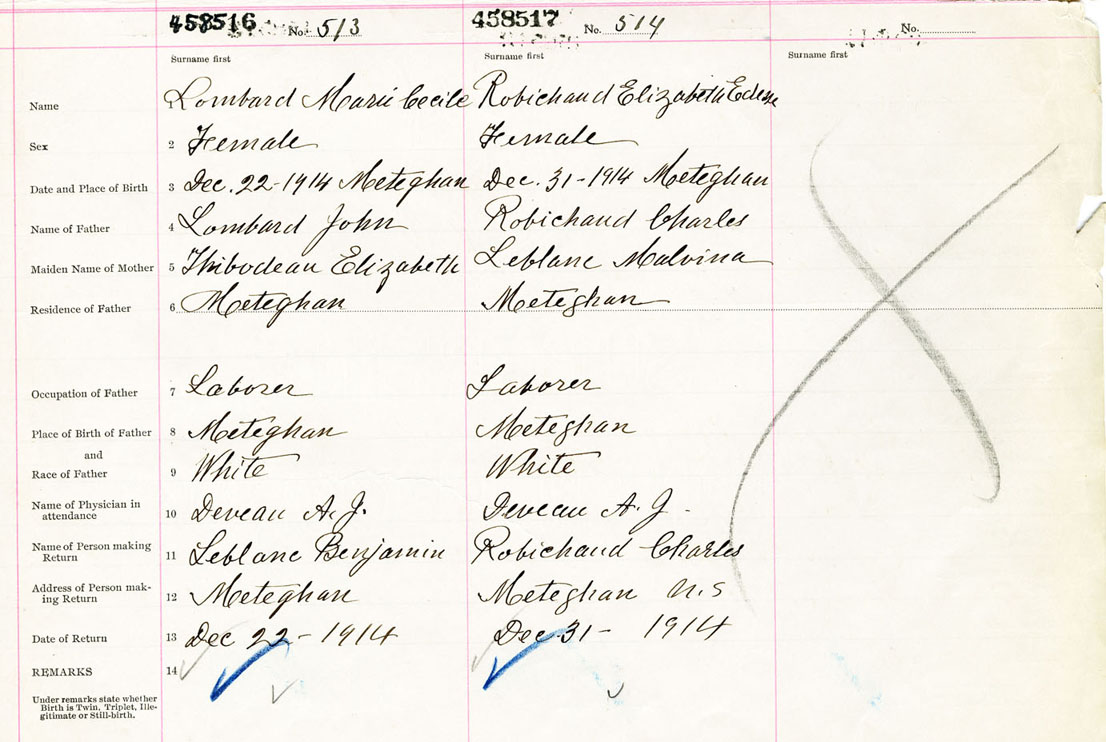 458516 No. 513 458517 No. 514 No.
Surname first Surname first Surname first
Name 1 Lombard Marie Cecile Robichaud Elizabeth
Sex 2 Female Female
Date and Place of Birth 3 Dec. 22-1914 Meteghan Dec. 31-1914 Meteghan
Name of Father 4 Lombard John Robichaud Charles
Maiden Name of Mother 5 Thibodeau Elizabeth Leblanc Malvina
Residence of Father 6 Meteghan Meteghan
Occupation of Father 7 Laborer Laborer
Place of Birth of Father 8 Meteghan Meteghan
and
Race of Father 9 White White
Name of Physician in
attendance 10 Deveau A. J. Deveau A. J.
Name of Person making
Return 11 Leblanc Benjamin Robichaud Charles
Address of Person mak-
ing Return 12 Meteghan Meteghan N.S
Date of Return 13 Dec 22-1914 Dec. 31-1914
REMARKS 14
Under remarks state whether
Birth is Twin, Triplet, Ille-
gitimate or Still-birth.